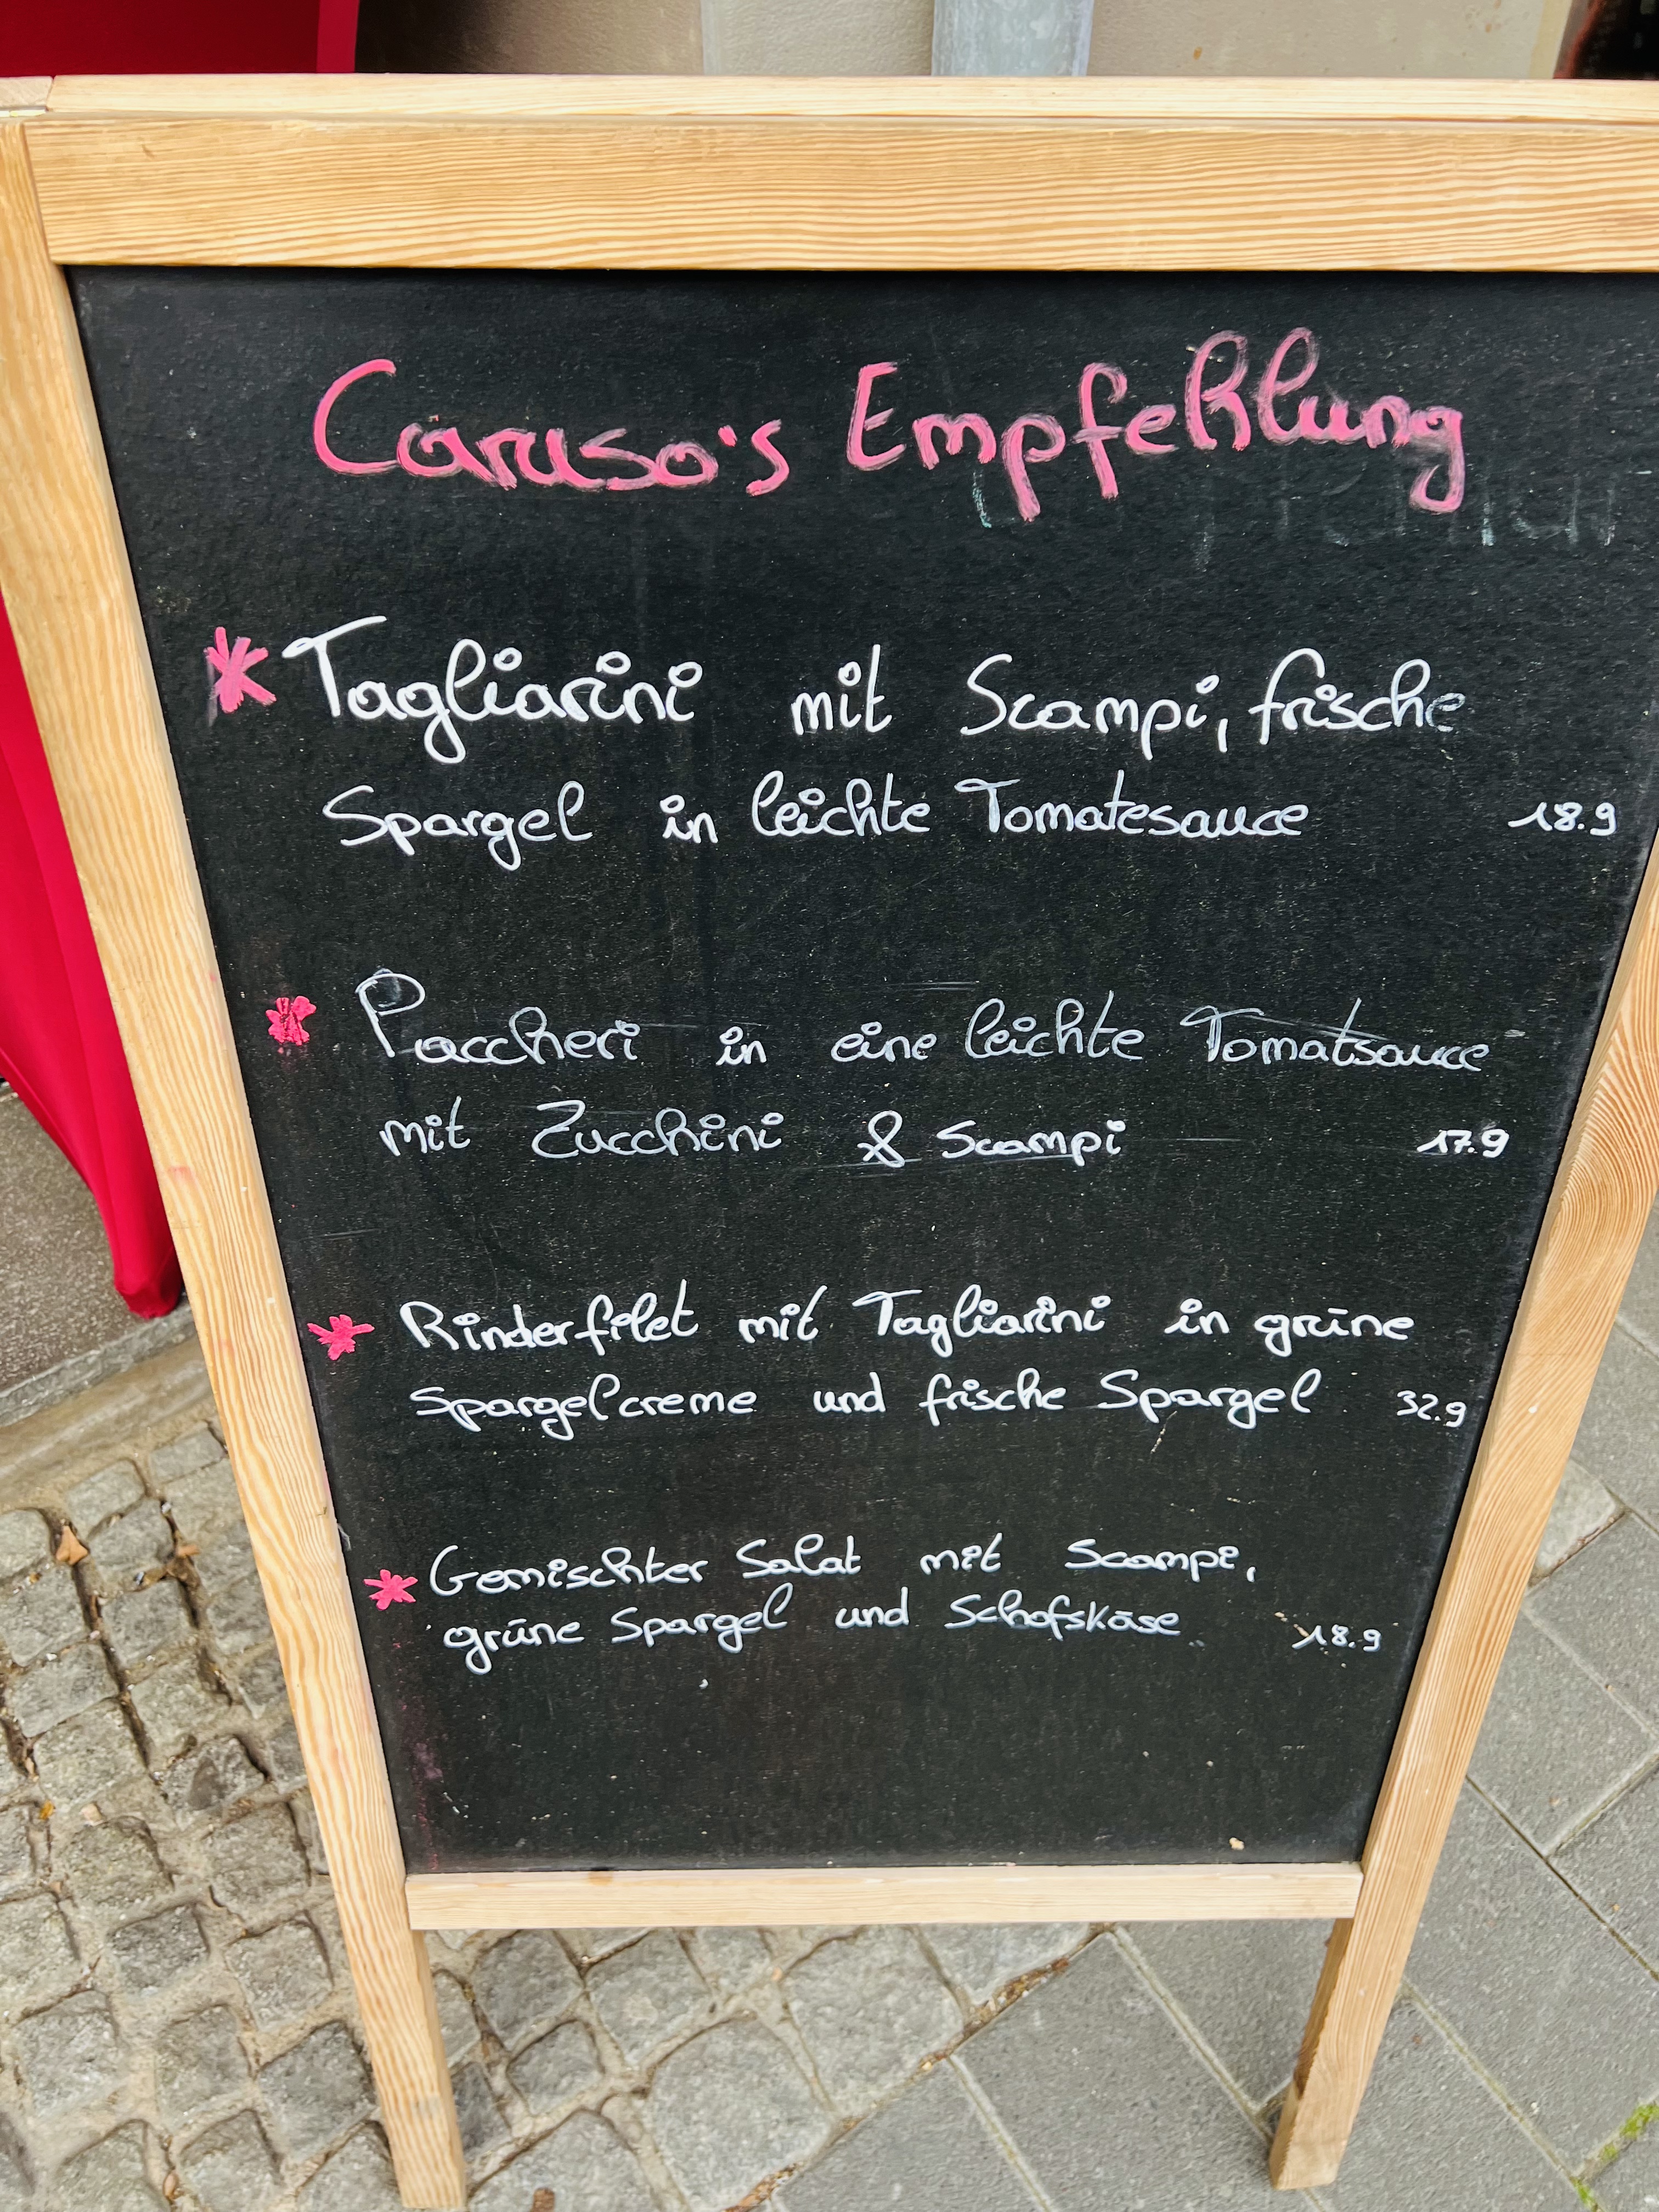 Caruso's Empfehlung
* Tagliarini mit Scampi, frische
Spargel in leichte Tomatesauce 18.9
* Paccheri in eine leichte Tomatsauce
mit Zucchini & Scampi 17.9
* Rinderfilet mit Tagliarini in grüne
Spargelcreme und frische Spargel 32.9
* Gemischter Salat mit Scampi,
grüne Spargel und Schafskäse 18.9